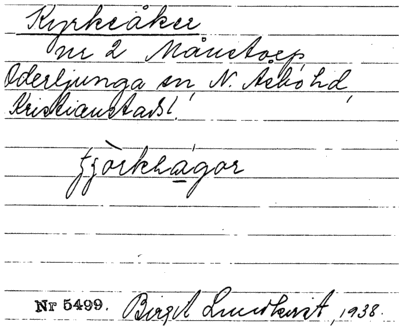 Kyrkeåker
nr 2 Månstorp
Oderljunga sn N. Åsbo hd,
Kristianstads l.
Nr 5499. Birgit Lundkvist, 1938.